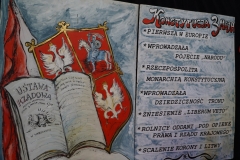 Konstytucja 3 Maja
*PIERWSZA W EUROPIE
*WPROWADZAŁA
POJĘCIE „NARODU”
*RZECZPOSPOLITA
MONARCHIĄ KONSTYTUCYJNĄ
*WPROWADZAŁA
DZIEDZICZNOŚĆ TRONU
*ZNIESIENIE „LIBERUM VETO”
*ROLNICY ODDANI „POD OPIEKĘ
PRAWA I RZĄDU KRAJOWEGO”
*SCALENIE KORONY I LITWY
USTAWA
RZĄDOWA